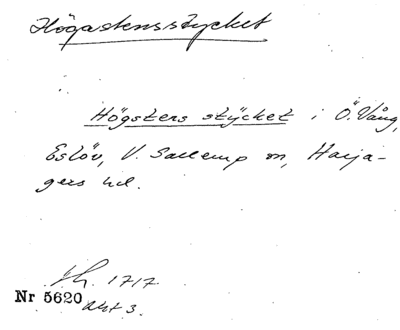 Högastensstycket
Högsters stycket i Ö. Vång,
Eslöv, V. Sallerup sn, Harja-
gers hd.
Sk. 1717
Nr 5620 Akt 3.